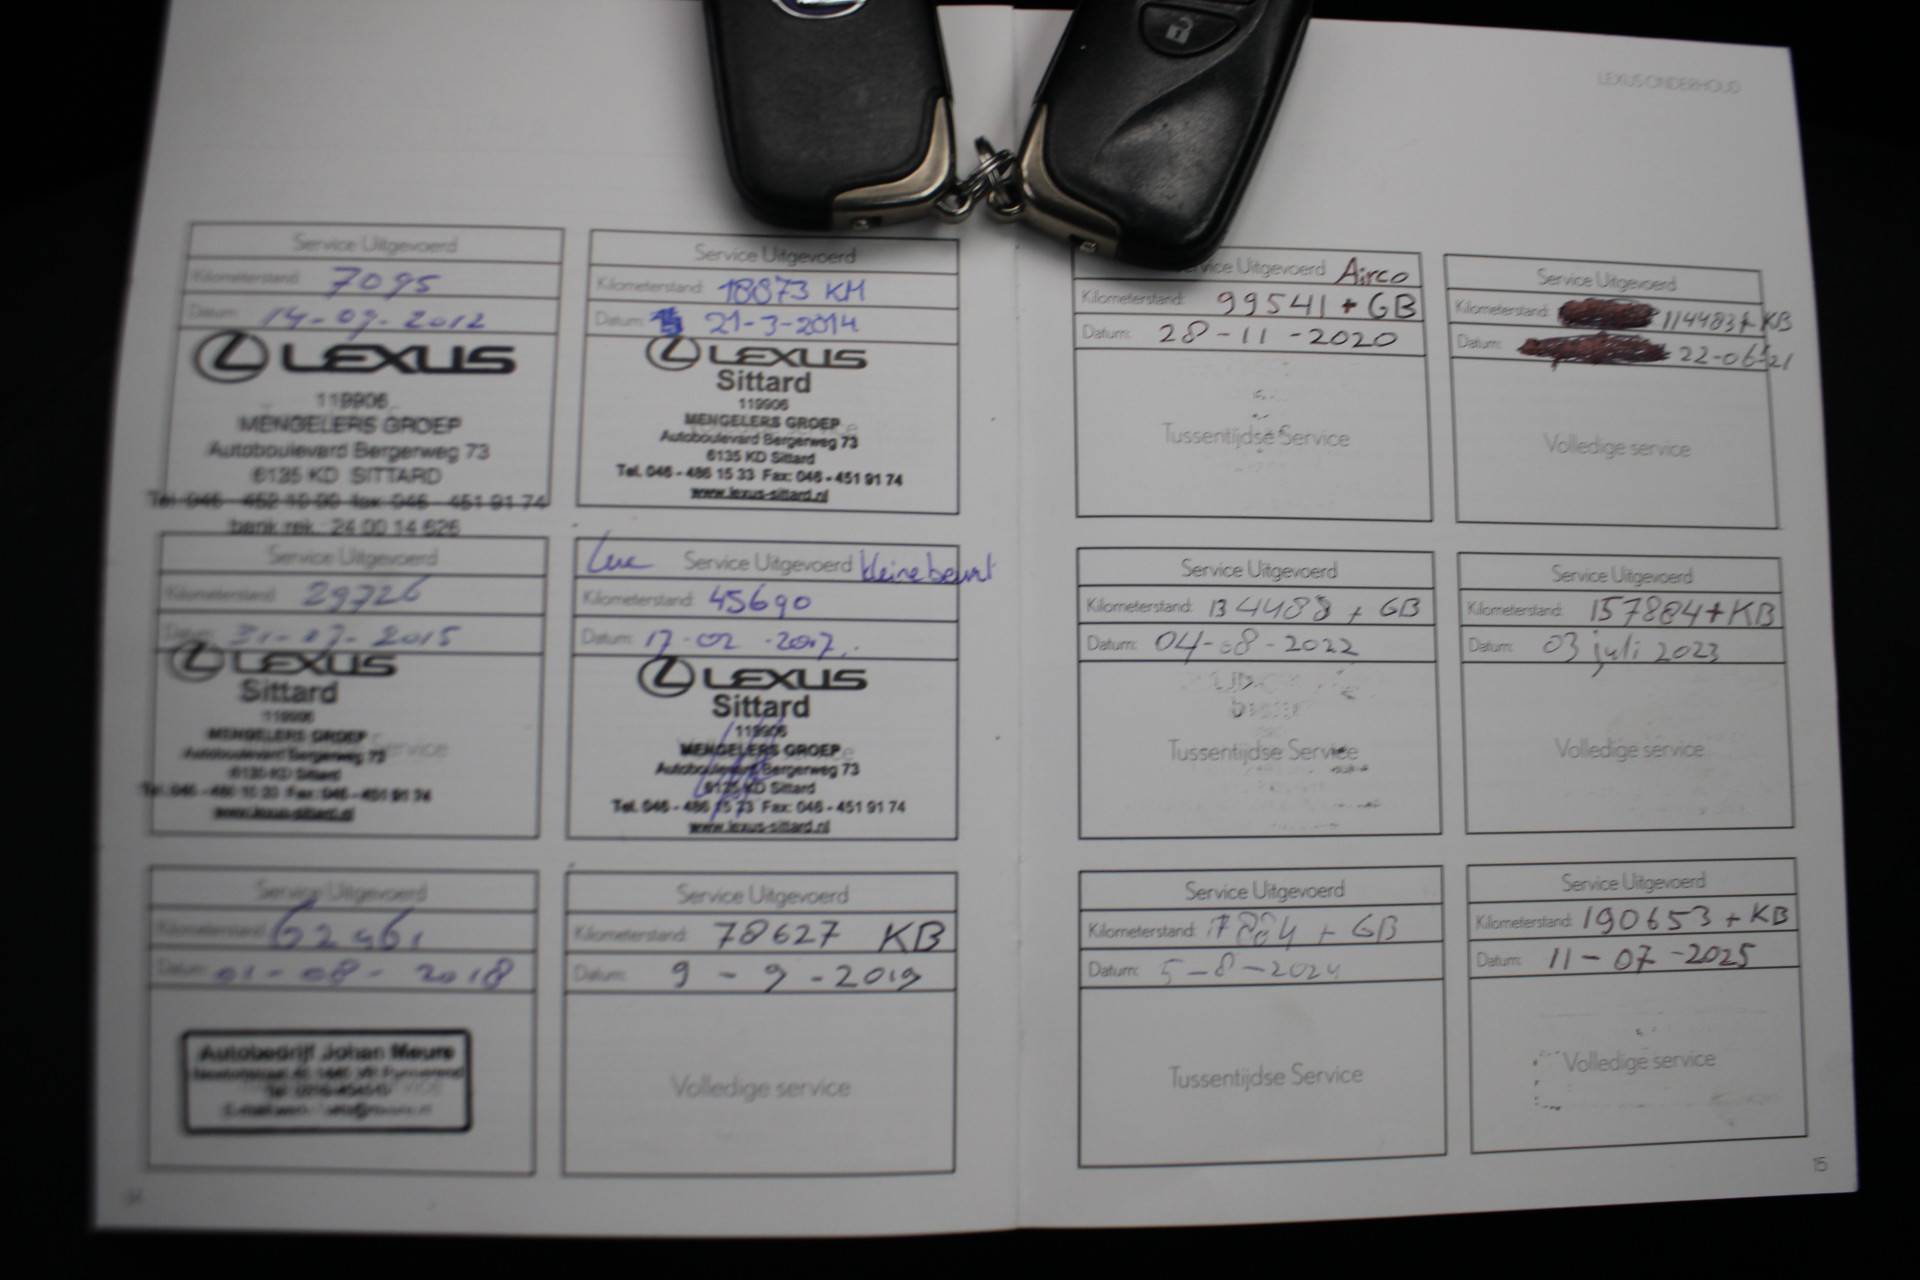 LEXUS ONDERHOUD
Service Uitgevoerd
Kilometerstand: 7095
Datum: 14-09-2012
LEXUS
119906
MENGELERS GROEP
Autoboulevard Bergerweg 73
6135 KD SITTARD
Tel. 046 - 452 fax 046 - 451 91 74
bank rek. 24 00 14 626
Service Uitgevoerd
Kilometerstand: 18873 KM
Datum: 21-3-2014
LEXUS
Sittard
119906
MENGELERS GROEP
Autoboulevard Bergerweg 73
6135 KD Sittard
Tel. 046 - 486 15 33 Fax: 046 - 451 91 74
www.lexus-sittard.nl
Service Uitgevoerd
Kilometerstand: 29726
Datum: 31-07-2015
LEXUS
Sittard
119906
MENGELERS GROEP
Autoboulevard Bergerweg 73
6135 KD Sittard
Tel. 046 - 486 15 33 Fax: 046 - 451 91 74
www.lexus-sittard.nl
Luc Service Uitgevoerd kleine beurt
Kilometerstand: 45690
Datum: 17-02-2017
LEXUS
Sittard
119906
MENGELERS GROEP
Autoboulevard Bergerweg 73
6135 KD Sittard
Tel. 046 - 486 15 33 Fax: 046 - 451 91 74
www.lexus-sittard.nl
Service Uitgevoerd
Kilometerstand: 62461
Datum: 01-08-2018
Autobedrijf Johan Meure
Service Uitgevoerd
Kilometerstand: 78627 KB
Datum: 9-9-2019
Volledige service
14
vice Uitgevoerd Airco
Kilometerstand: 99541 + GB
Datum: 28-11-2020
Tussentijdse Service
Service Uitgevoerd
Kilometerstand: 114483 + KB
Datum: 22-06-21
Volledige service
Service Uitgevoerd
Kilometerstand: 134488 + GB
Datum: 04-08-2022
Tussentijdse Service
Service Uitgevoerd
Kilometerstand: 157884 + KB
Datum: 03 juli 2023
Volledige service
Service Uitgevoerd
Kilometerstand: + GB
Datum: 5-8-2024
Tussentijdse Service
Service Uitgevoerd
Kilometerstand: 190653 + KB
Datum: 11-07-2025
Volledige service
15